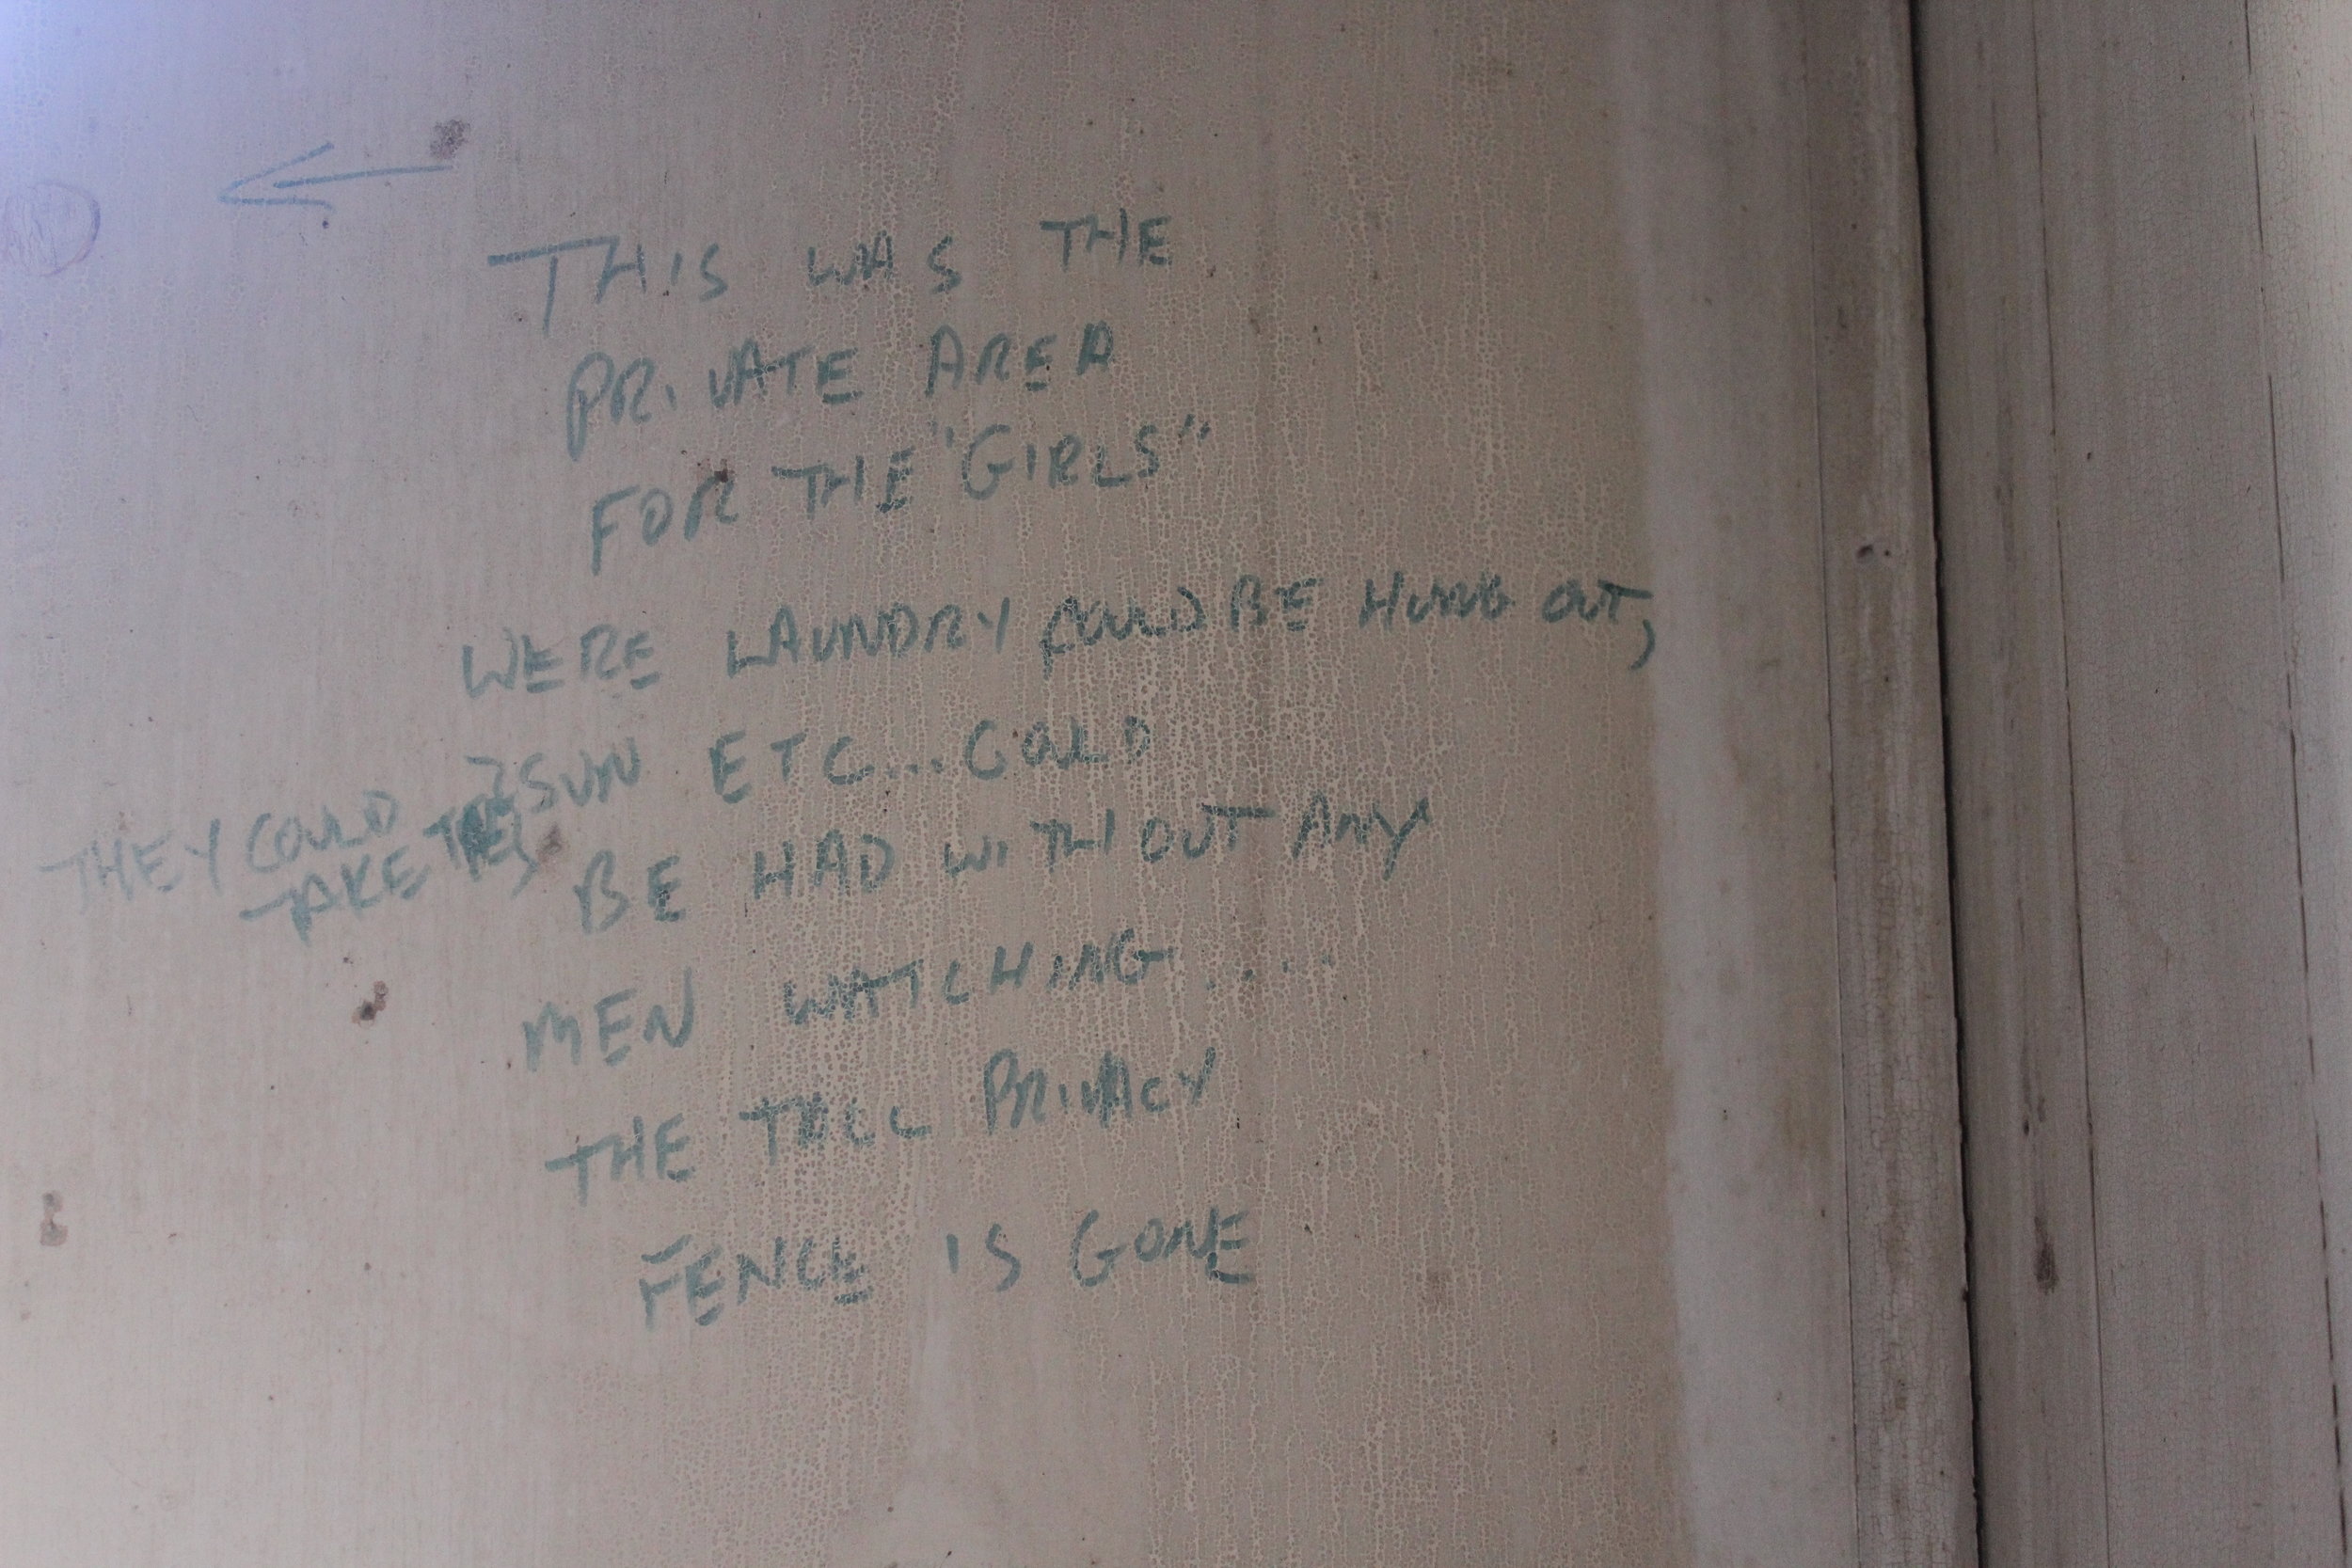 THIS WAS THE
PRIVATE AREA
FOR THE "GIRLS"
WERE LAUNDRY COULD BE HUNG OUT,
THEY COULD
TAKE THE
SUN ETC... COULD
BE HAD WITHOUT ANY
MEN WATCHING.....
THE TALL PRIVACY
FENCE IS GONE